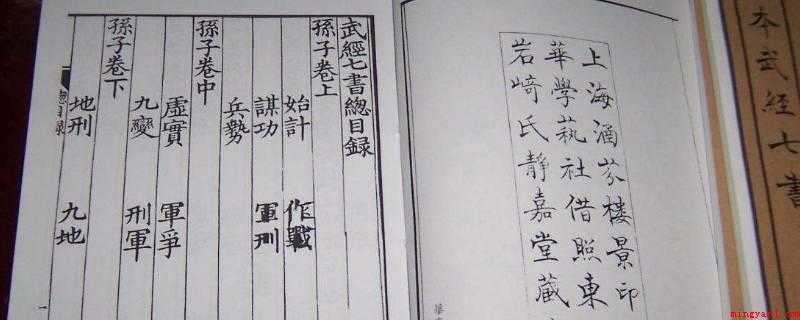 本武經七書
上海涵芬樓景印
華學藝社借照東
岩崎氏靜嘉堂藏
武經七書總目録
孫子卷上
始計 作戰
謀功 軍刑
兵勢
孫子卷中
虛實 軍爭
九變 刑軍
孫子卷下
地刑 九地
總目録
一